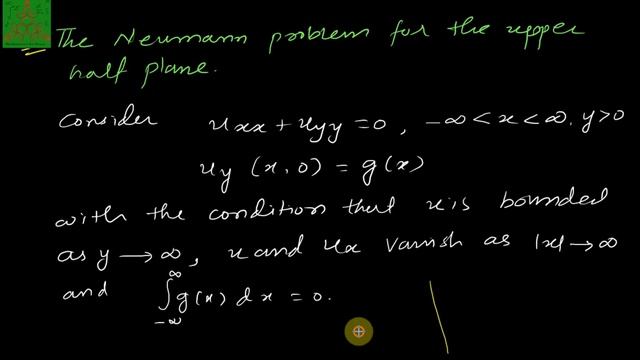 The Neumann problem for the upper
half plane.
Consider uxx + uyy = 0, -∞ < x < ∞, y > 0
uy (x, 0) = g(x)
with the condition that u is bounded
as y → ∞, u and ux vanish as |x| → ∞
and ∫_{-∞}^{∞} g(x) dx = 0.